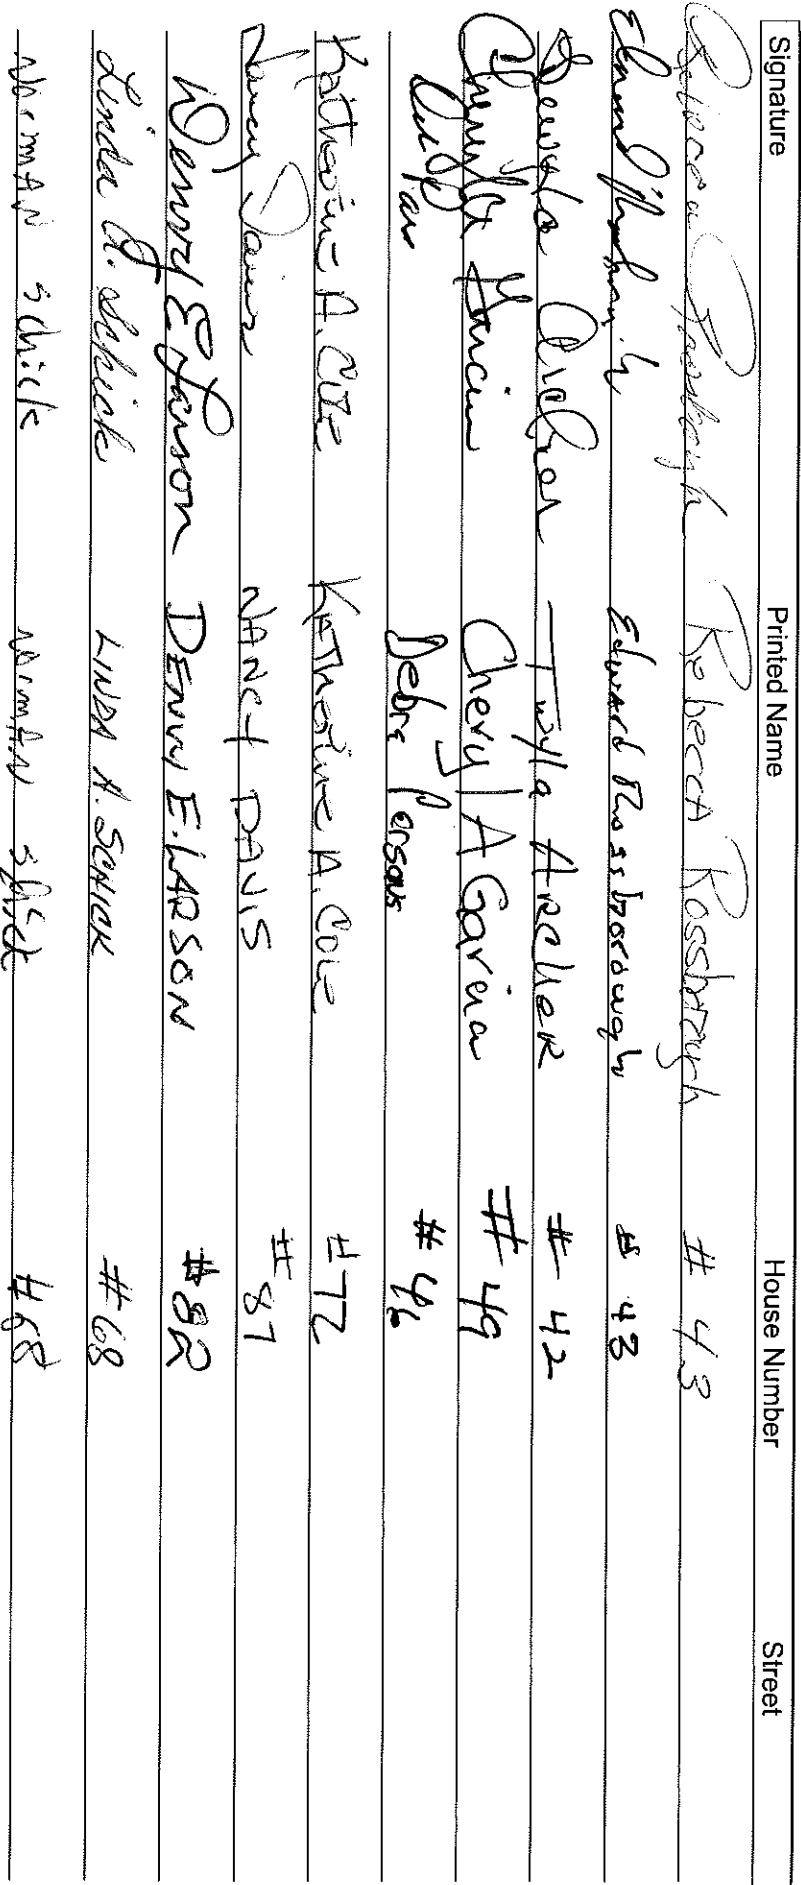 Signature Printed Name House Number Street
Rebecca Rossborough Rebecca Rossborough # 43
Edward Rossborough # 43
Twyla Archer Twyla Archer # 42
Cheryl A Garcia Cheryl A Garcia # 49
Debra Persons # 46
Katherine A. Cole Katherine A. Cole # 72
Nancy Davis Nancy Davis # 87
Denny E Larson Denny E. Larson # 82
Linda A. Schick Linda A. Schick # 68
Norman Schick Norman Schick # 68